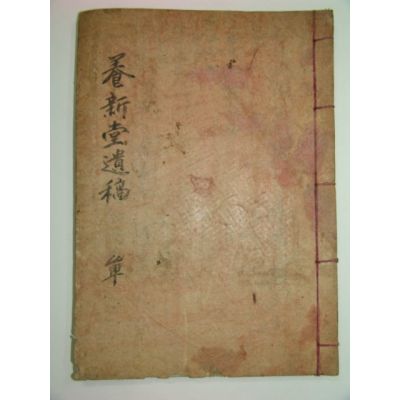 養新堂遺稿 單